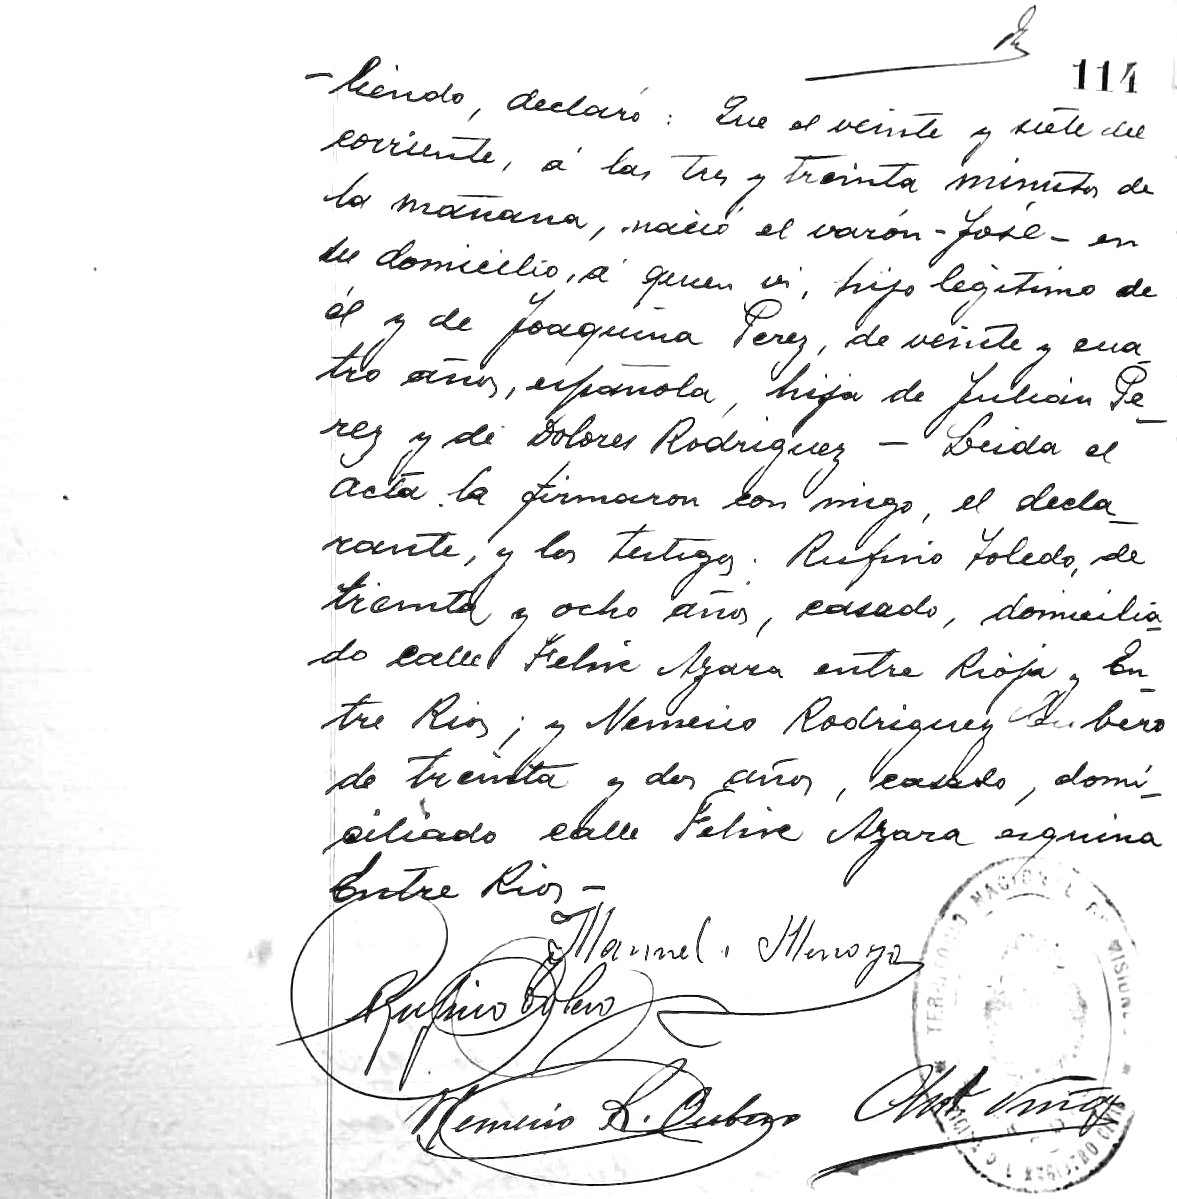 114
-liendo, declaró: Que el veinte y siete del
corriente, á las tres y treinta minutos de
la mañana, nació el varón - José - en
su domicilio, á quien vi, hijo legítimo de
él y de Joaquina Perez, de veinte y cua_
tro años, española, hija de Julián Pe_
rez y de Dolores Rodriguez - Leida el
acta la firmaron con migo, el decla_
rante, y los testigos. Rufino Toledo, de
treinta y ocho años, casado, domicilia_
do calle Felix Azara entre Rioja y En_
tre Rios; y Nemecio Rodriguez Cubero
de treinta y dos años, casado, domi_
ciliado calle Felix Azara esquina
Entre Rios -
Manuel Menoyo
Rufino Toledo
Nemecio R. Cubero
TERRITORIO NACIONAL DE MISIONES